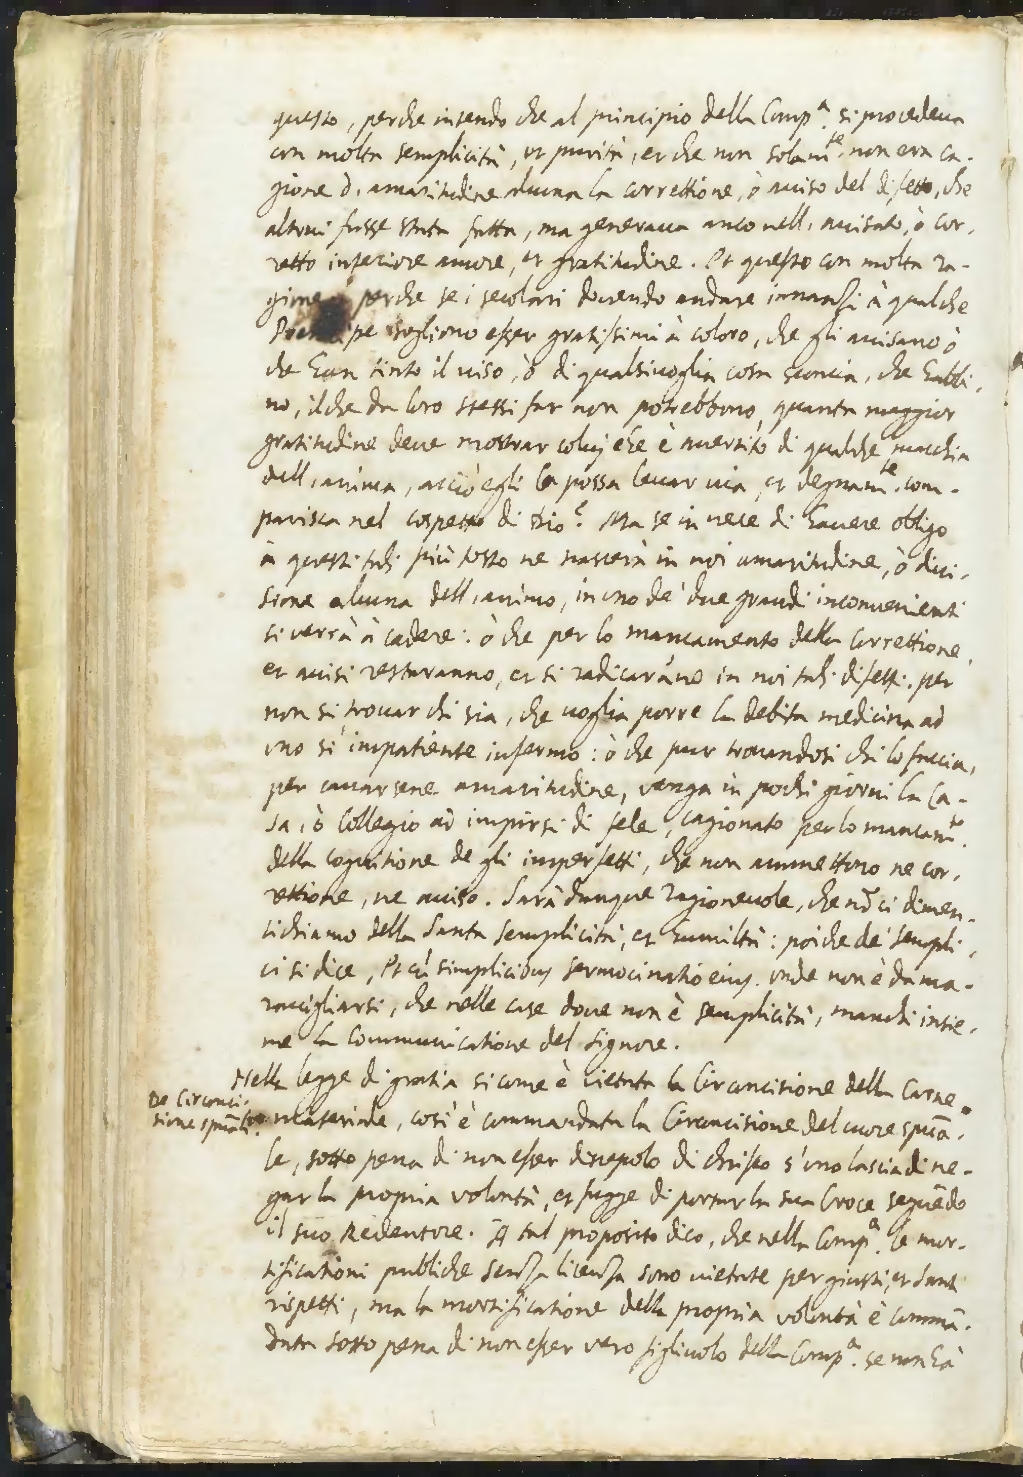 questo, perche intendo che al principio della Comp.ª si procedeua
con molta semplicità, et purità, et che non solam.te non era ca-
gione d'amaritudine alcuna la correttione, ò auiso del difetto, che
altrui fusse stata fatta, ma generaua anco nell'auisato, ò cor-
retto interiore amore, et gratitudine. Et questo con molta ra-
gione perche se i secolari douendo andare innanzi à qualche
Prencipe sogliono esser gratissimi à coloro, che gli auisano ò
che han tinto il uiso, ò di qualsiuoglia cosa sconcia, che habbi-
no, ilche da loro stessi far non potrebbono, quanta maggior
gratitudine deue mostrar coluj che è auertito di qualche macchia
dell'anima, acciò egli la possa leuar uia, et degnam.te com-
parisca nel cospetto di Dio? Ma se in uece di hauere obligo
à questi tali più tosto ne nascerà in noi amaritudine, ò diui-
sione alcuna dell'animo, in uno de' due grandi inconuenienti
si verrà à cadere: ò che per lo mancamento della correttione,
et auisi restaranno, et si radicarāno in noi tali difetti, per
non si trouar chi sia, che uoglia porre la debita medicina ad
vno sì impatiente infermo: ò che pur trouandosi chi lo faccia,
per cauarsene amaritudine, venga in pochi giorni la Ca-
sa, ò Collegio ad impirsi di fele, cagionato per lo mancam.to
della cognitione de gli imperfetti, che non ammettono ne cor-
rettione, ne auiso. Sarà dunque ragioneuole, che nō ci dimen-
tichiamo della Santa semplicità, et humiltà: poiche de' sempli-
ci si dice, Et cū simplicibus sermocinatio eius. onde non è da ma-
rauigliarsi, che nelle case doue non è semplicità, manchi insie-
me la communicatione del Signore.
Nella legge di gratia sicome è uietata la Circuncisione della Carne
De Circonci-
sione spirāli.
materiale, così è commandata la Circuncisione del cuore spirā-
le, sotto pena di non esser discepolo di Christo s'uno lascia di ne-
gar la propria volontà, et fugge di portar la sua Croce seguēdo
il suo Redentore. A tal proposito dico, che nella Comp.ª le mor-
tificationi publiche senza licenza sono uietate per giusti, et santi
rispetti, ma la mortificatione della propria volontà è commā-
data sotto pena di non esser vero figliuolo della Comp.ª se non hà